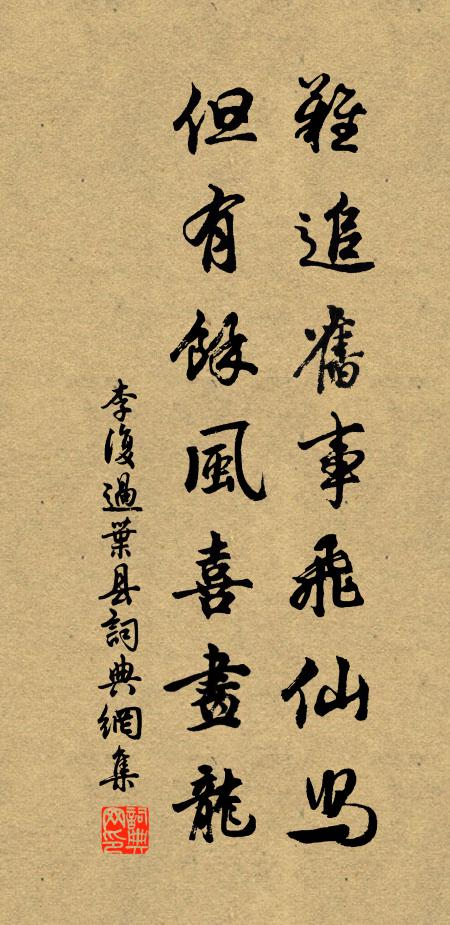 難追舊事飛仙舄
但有餘風喜畫龍
李復過葉县詞典網集
詞典网印